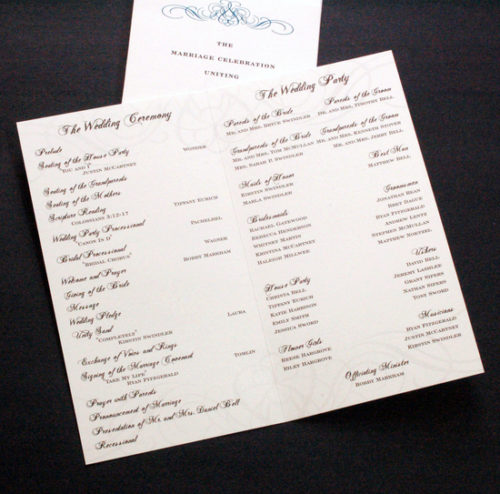 THE
MARRIAGE CELEBRATION
UNITING
The Wedding Ceremony
Prelude
Seating of the House Party WONDER
"YOU AND I" JUSTIN MCCARTNEY
Seating of the Grandparents
Seating of the Mothers
Scripture Reading TIFFANY EURICH
COLOSSIANS 3:12-17
Wedding Party Processional PACHELBEL
"CANON IN D"
Bridal Processional WAGNER
"BRIDAL CHORUS" BOBBY MARKHAM
Welcome and Prayer
Giving of the Bride
Message
Wedding Pledge
Unity Sand LAURA
"COMPLETELY" KIRSTIN SWINDLER
Exchange of Vows and Rings
Signing of the Marriage Covenant TOMLIN
"TAKE MY LIFE" RYAN FITZGERALD
Prayer with Parents
Pronouncement of Marriage
Presentation of Mr. and Mrs. Daniel Bell
Recessional
The Wedding Party
Parents of the Bride
MR. AND MRS. BRUCE SWINDLER
Parents of the Groom
DR. AND MRS. TIMOTHY BELL
Grandparents of the Bride
MR. AND MRS. TOM MCMULLAN
MRS. SARAH D. SWINDLER
Grandparents of the Groom
MR. AND MRS. KENNETH STOVER
MR. AND MRS. JERRY BELL
Maids of Honor
KIRSTIN SWINDLER
MARLA SWINDLER
Best Man
MATTHEW BELL
Bridesmaids
RACHAEL GATEWOOD
REBECCA HENDERSON
WHITNEY MARVIN
KRISTINA MCCARTNEY
HALEIGH MILLWEE
Groomsmen
JONATHAN BEAN
BRET DAGUE
RYAN FITZGERALD
ANDREW LENTZ
STEPHEN MCMULLAN
MATTHEW NOETZEL
House Party
CHRISTA BELL
TIFFANY EURICH
KATIE HARBISON
EMILY SMITH
JESSICA SWORD
Ushers
DAVID BELL
JEREMY LASSLEE
GRANT SIPERS
NATHAN SIPERS
TONY SWORD
Flower Girls
REESE HARGROVE
RILEY HARGROVE
Musicians
RYAN FITZGERALD
JUSTIN MCCARTNEY
KIRSTIN SWINDLER
Officiating Minister
BOBBY MARKHAM